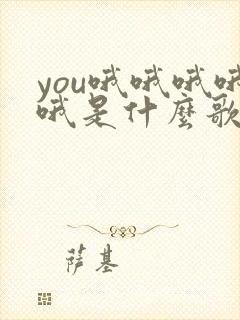 you哦哦哦哦
哦是什麼歌
萨基